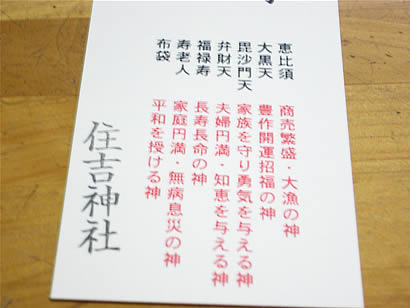 恵比須 商売繁盛・大漁の神
大黒天 豊作開運招福の神
毘沙門天 家族を守り勇気を与える神
弁財天 夫婦円満・知恵を与える神
福禄寿 長寿長命の神
寿老人 家庭円満・無病息災の神
布袋 平和を授ける神
住吉神社